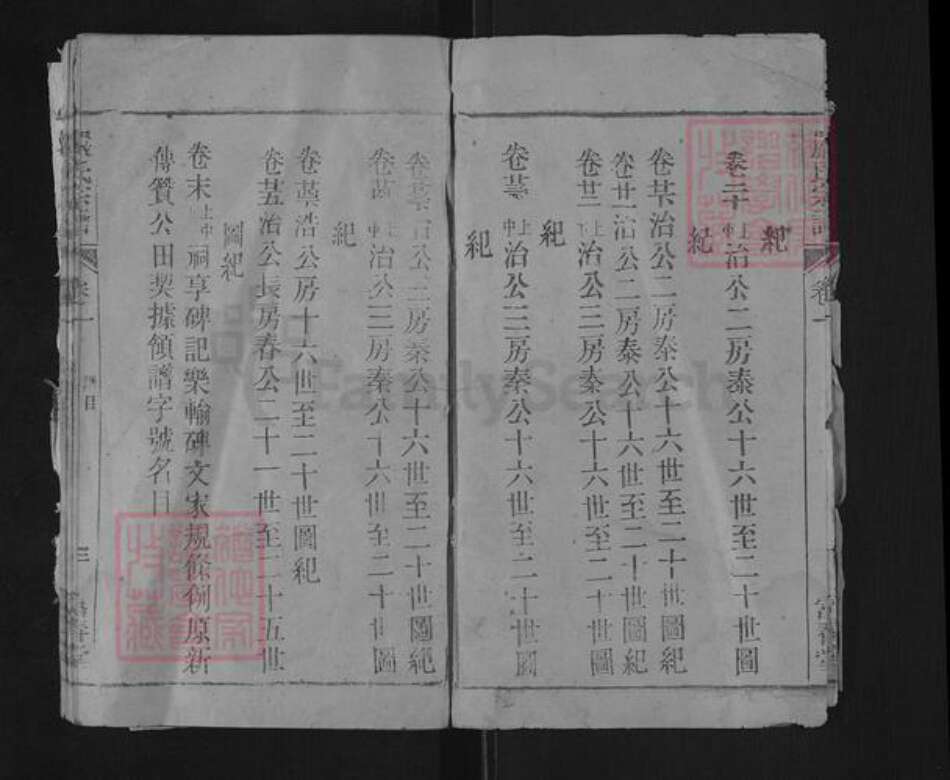 氏宗譜
卷一
紀
卷二十上中治公二房泰公十六世至二十世圖
紀
卷廿治公二房泰公十六世至二十世圖紀
卷廿治公二房泰公十六世至二十世圖紀
卷廿治公三房秦公十六世至二十世圖
紀
卷上中治公三房秦公十六世至二十世圖
紀
卷治公三房秦公十六世至二十世圖紀
卷上中治公三房秦公十六世至二十世圖
紀
卷浩公房十六世至二十世圖紀
卷治公長房春公二十一世至二十五世
圖紀
卷末上中祠享碑記樂輸碑文家規條例原新
傳贊公田契據領譜字號名目
氏宗譜
卷一
目
三
FamilySearch